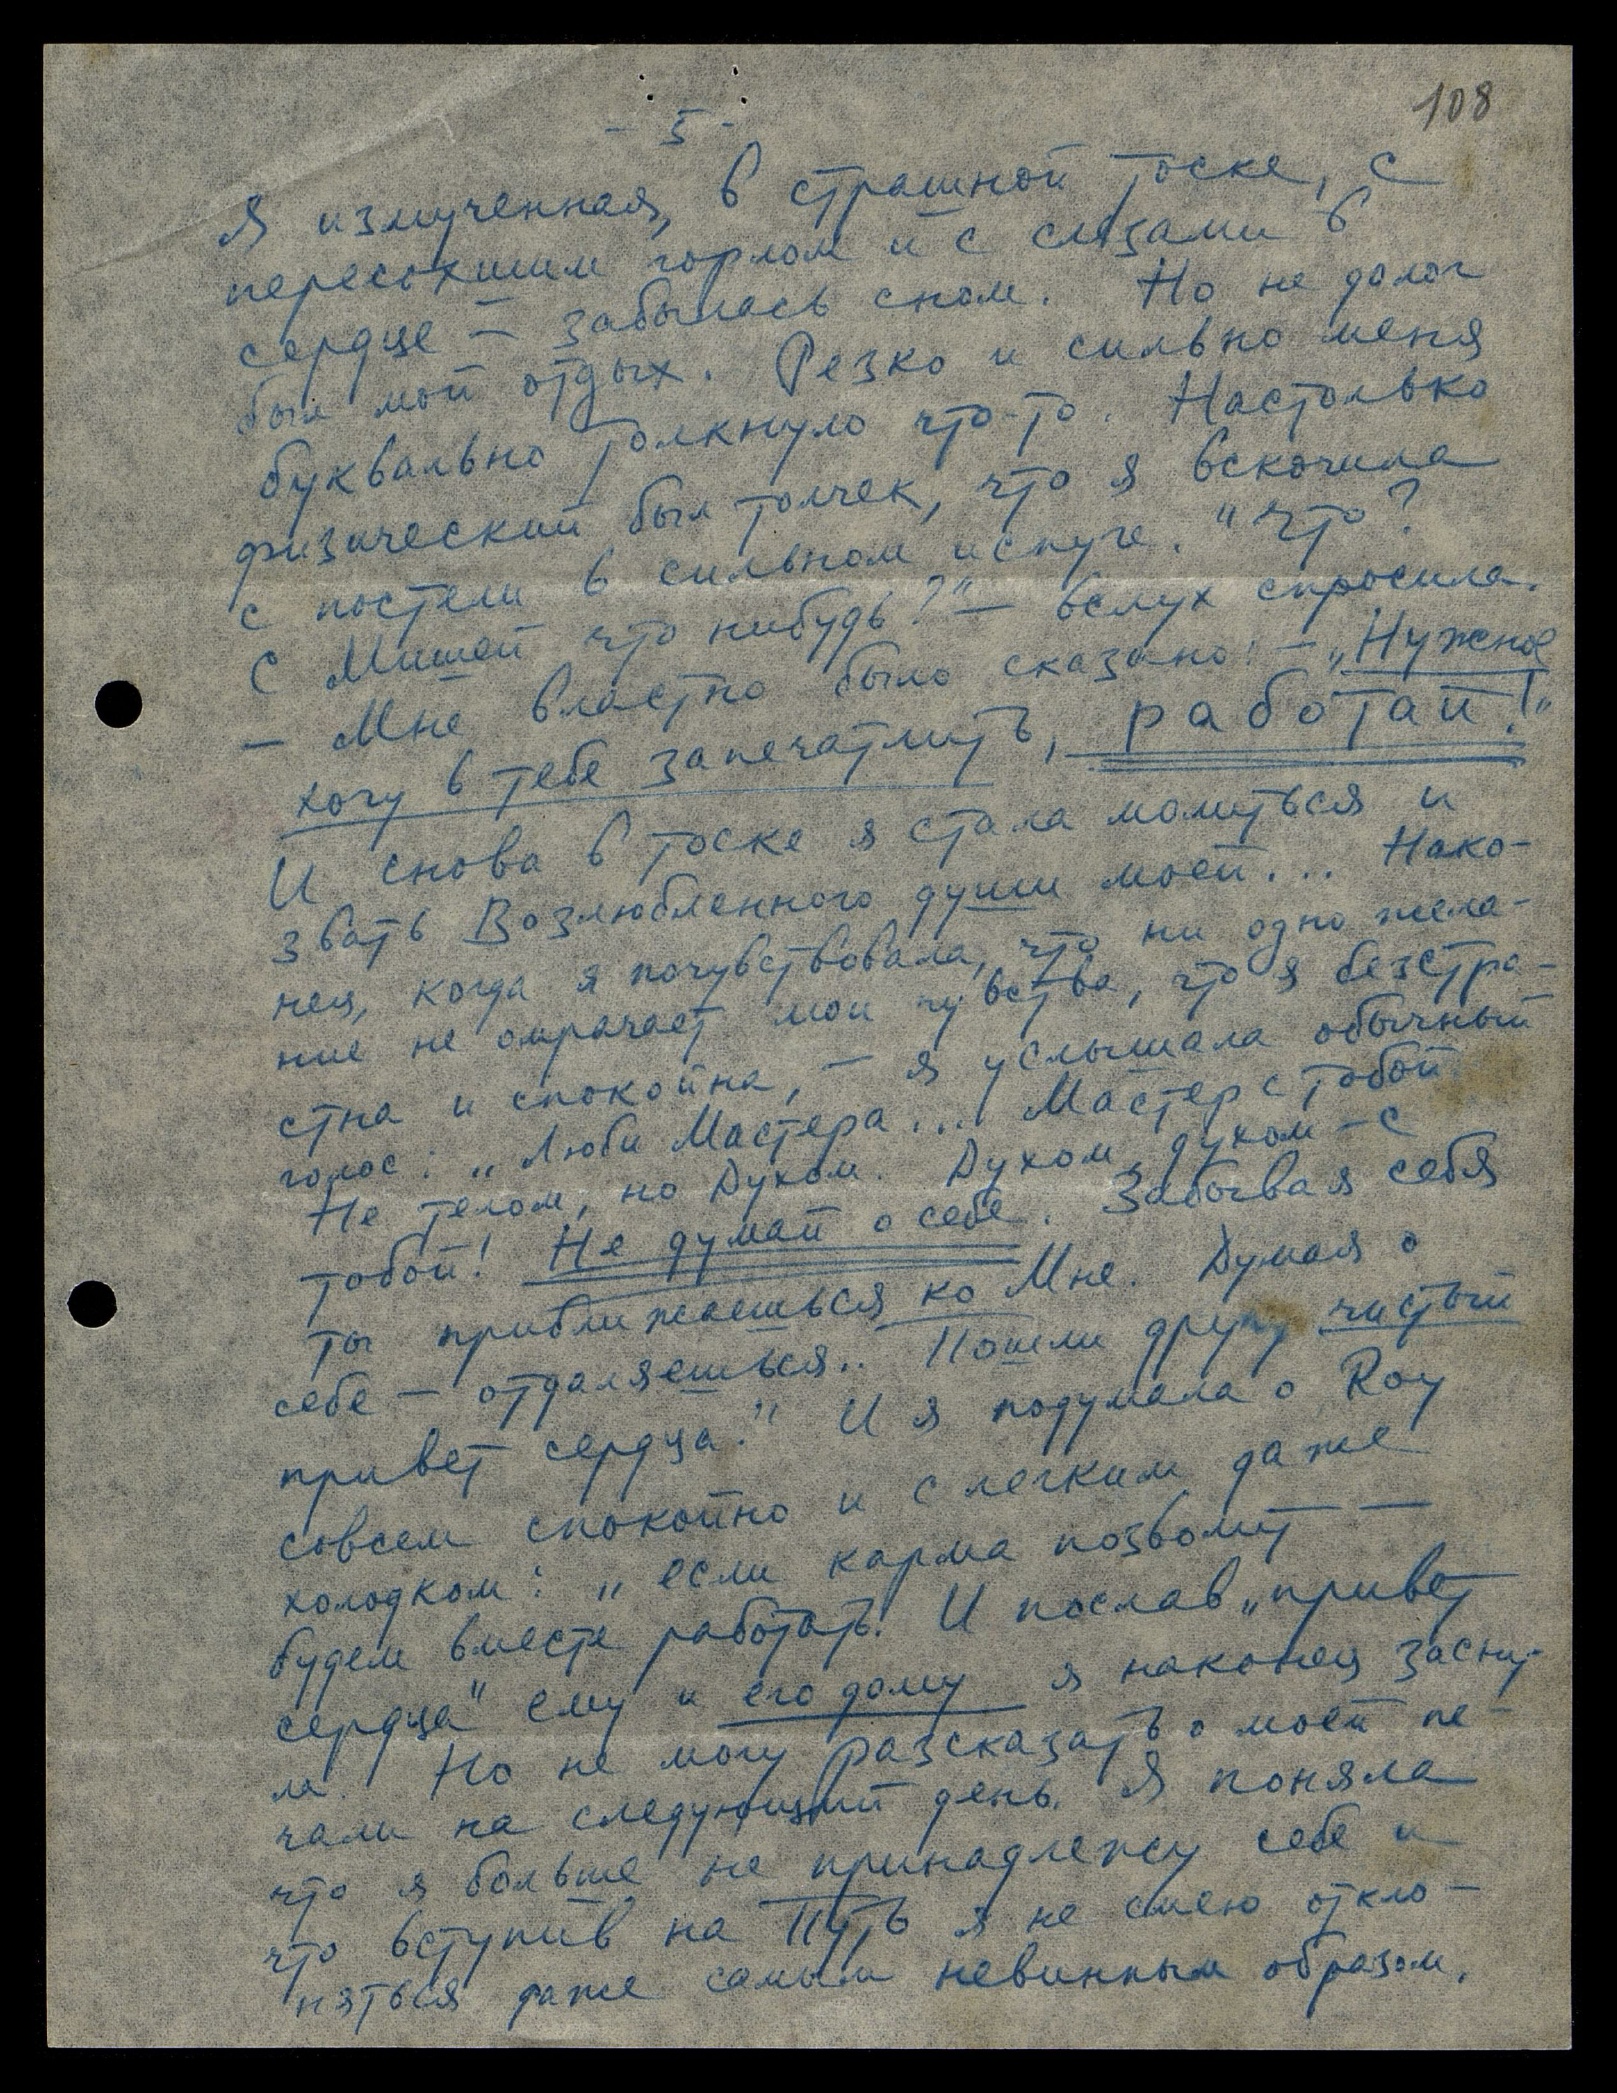 108
- 5 -
Я измученная, в страшной тоске, с
пересохшим горлом и с слезами в
сердце — забылась сном. Но не долог
был мой отдых. Резко и сильно меня
буквально толкнуло что-то. Настолько
физический был толчек, что я вскочила
с постели в сильном испуге. "Что?
С Мишей что нибудь?" — вслух спросила.
— Мне властно было сказано: — „Нужное
хочу в тебе запечатлить, работай!"
И снова в тоске я стала молиться и
звать Возлюбленного души моей... Нако-
нец, когда я почувствовала, что ни одно жела-
ние не омрачает мои чувства, что я безстра-
стна и спокойна, — я услышала обычный
голос: „Люби Мастера... Мастер с тобой.
Не телом, но Духом. Духом, духом — с
тобой! Не думай о себе. Забывая себя
ты приближаешься ко Мне. Думая о
себе — отдаляешься.. Пошли другу чистый
привет сердца." И я подумала о Roy
совсем спокойно и с легким даже
холодком: „если карма позволит — —
будем вместе работать! И послав „привет
сердца" ему и его дому я наконец засну-
ла. Но не могу разсказать о моей пе-
чали на следующий день. Я поняла
что я больше не принадлежу себе и
что вступив на Путь я не смею откло-
няться даже самым невинным образом.